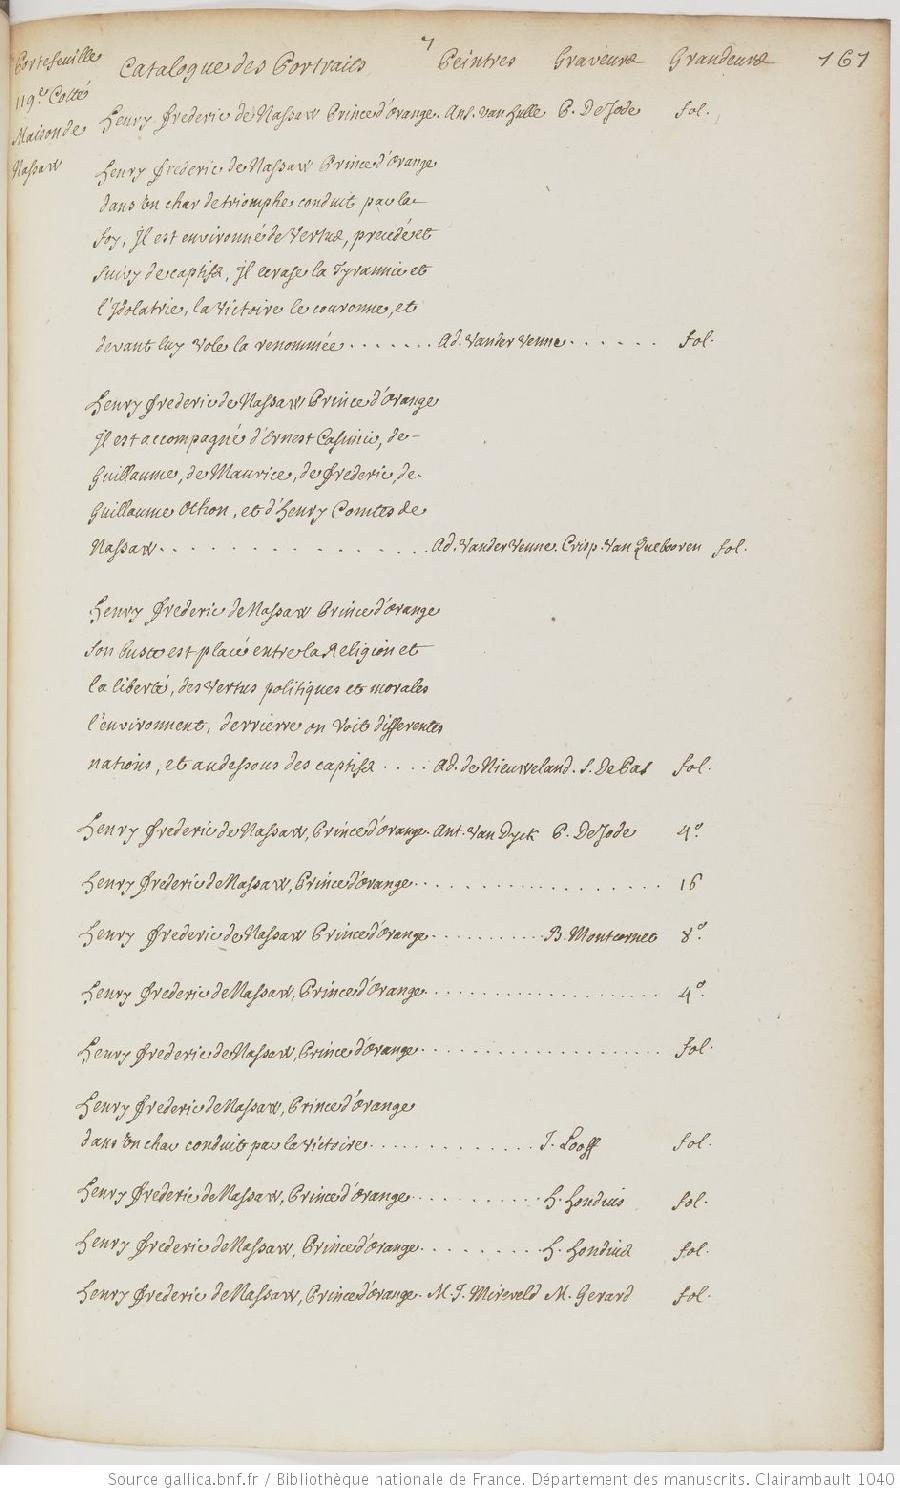 7
Portefeuille Catalogue des Portraits Peintres Graveurs Grandeurs 161
119e. Cotté
Maison de
Nassaw
Henry frederic de Nassaw Prince d'Orange. Ant. van hulle P. De Jode fol.
Henry frederic de Nassaw Prince d'Orange
dans un char de triomphe conduit par la
foy, Il est environné de vertus, precedé et
suivy de captifs, il ecrase la Tyrannie et
l'Idolatrie, la victoire le couronne, et
devant luy vole la renommée ....... Ad. Vander Venne ...... fol.
Henry frederic de Nassaw Prince d'Orange
Il est accompagné d'Ernest Casimir, de
Guillaume, de Maurice, de frederic, de
Guillaume Othon, et d'Henry Comtes de
Nassaw. . . . . . . . . . . . . . . . Ad. Vander Venne. Crisp. Van Queboren fol.
Henry frederic de Nassaw Prince d'Orange
son buste est placé entre la Religion et
la liberté, des vertus politiques et morales
l'environnent, derrierre on voit differentes
nations, et au dessous des captifs .... Ad. de Nieuweland. S. De Pas fol.
Henry frederic de Nassaw, Prince d'Orange. Ant. Van Dyck P. De Jode 4o.
Henry frederic de Nassaw, Prince d'Orange .................. 16
Henry frederic de Nassaw Prince d'Orange .......... B. Montcornet 8o.
Henry frederic de Nassaw, Prince d'Orange .................. 4o.
Henry frederic de Nassaw, Prince d'Orange .................. fol.
Henry frederic de Nassaw, Prince d'Orange
dans un char conduit par la victoire ............ J. Looff fol.
Henry frederic de Nassaw, Prince d'Orange .......... H. Hondius fol.
Henry frederic de Nassaw, Prince d'Orange ......... H. Hondius fol.
Henry frederic de Nassaw, Prince d'Orange. M. J. Mireveld M. Gerard fol.
Source gallica.bnf.fr / Bibliothèque nationale de France. Département des manuscrits. Clairambault 1040